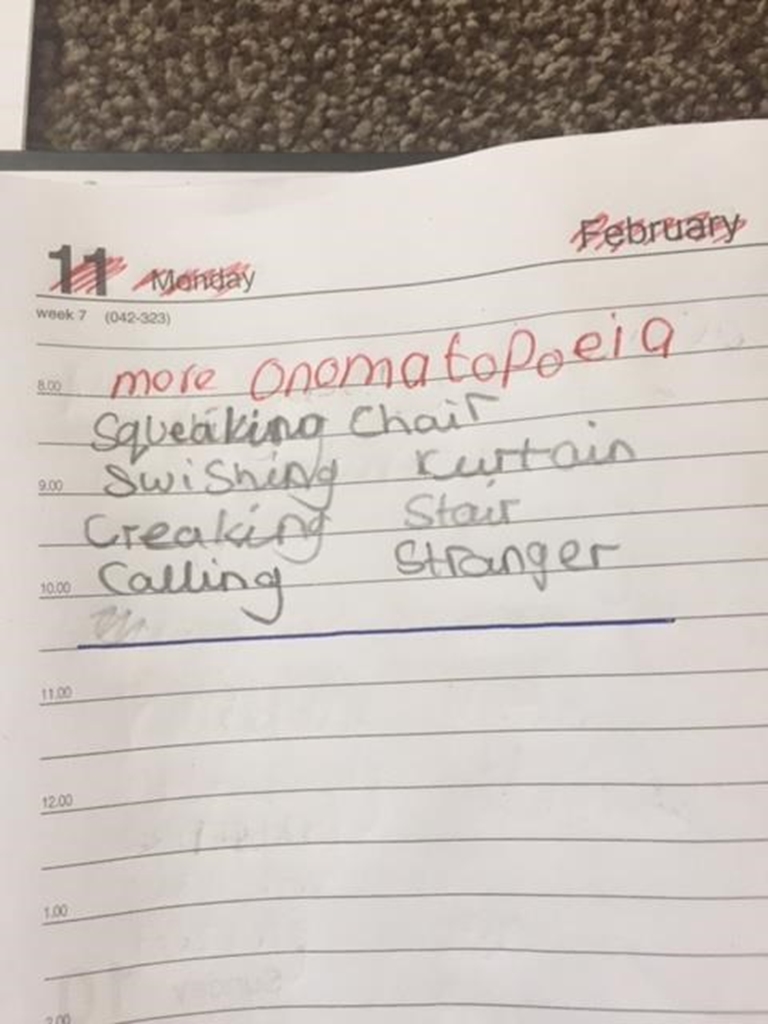 11 Monday February
week 7 (042-323)
more onomatopoeia
8.00
Squeaking Chair
Swishing Kurtain
9.00
Creaking Stair
Calling Stranger
10.00
11.00
12.00
1.00
2.00